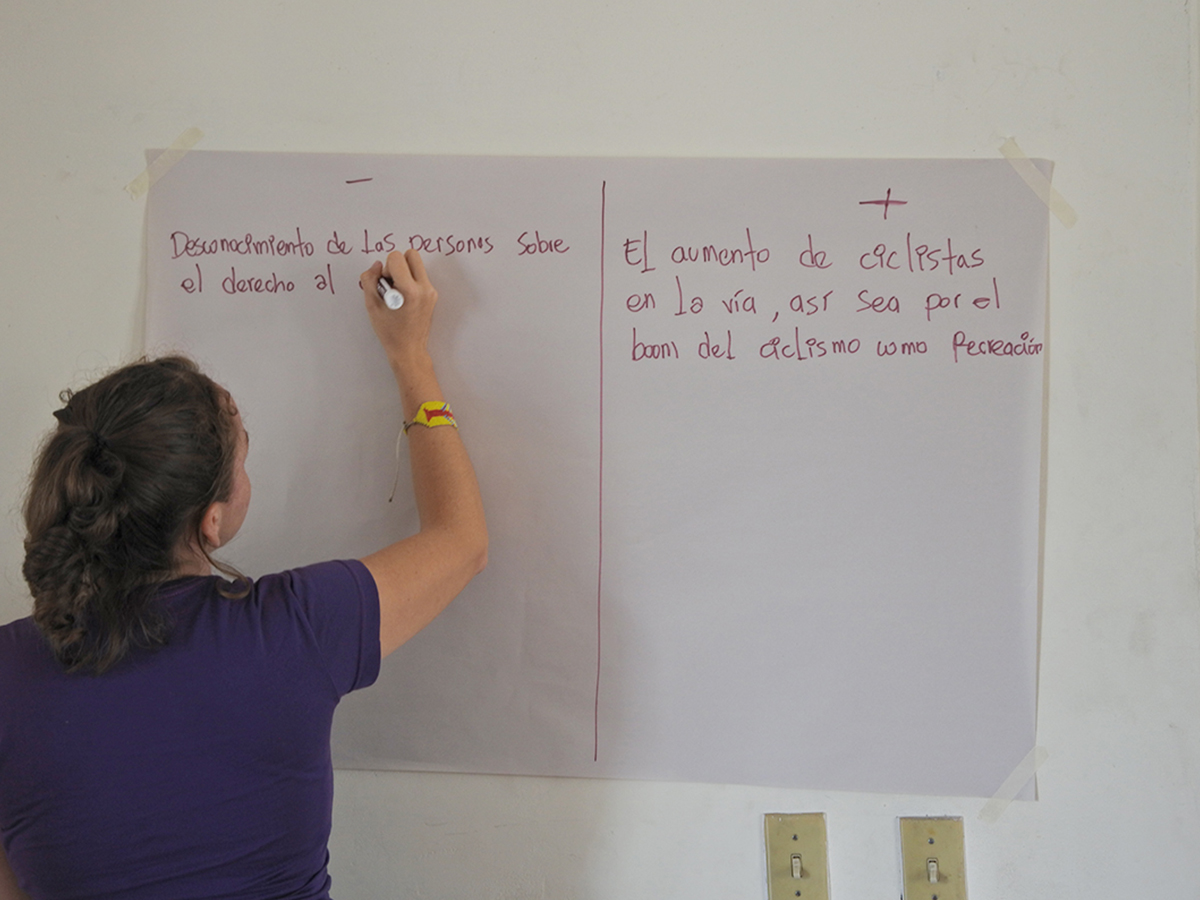 −
Desconocimiento de las personas sobre
el derecho al
+
El aumento de ciclistas
en la vía, así sea por el
boom del ciclismo como Recreación